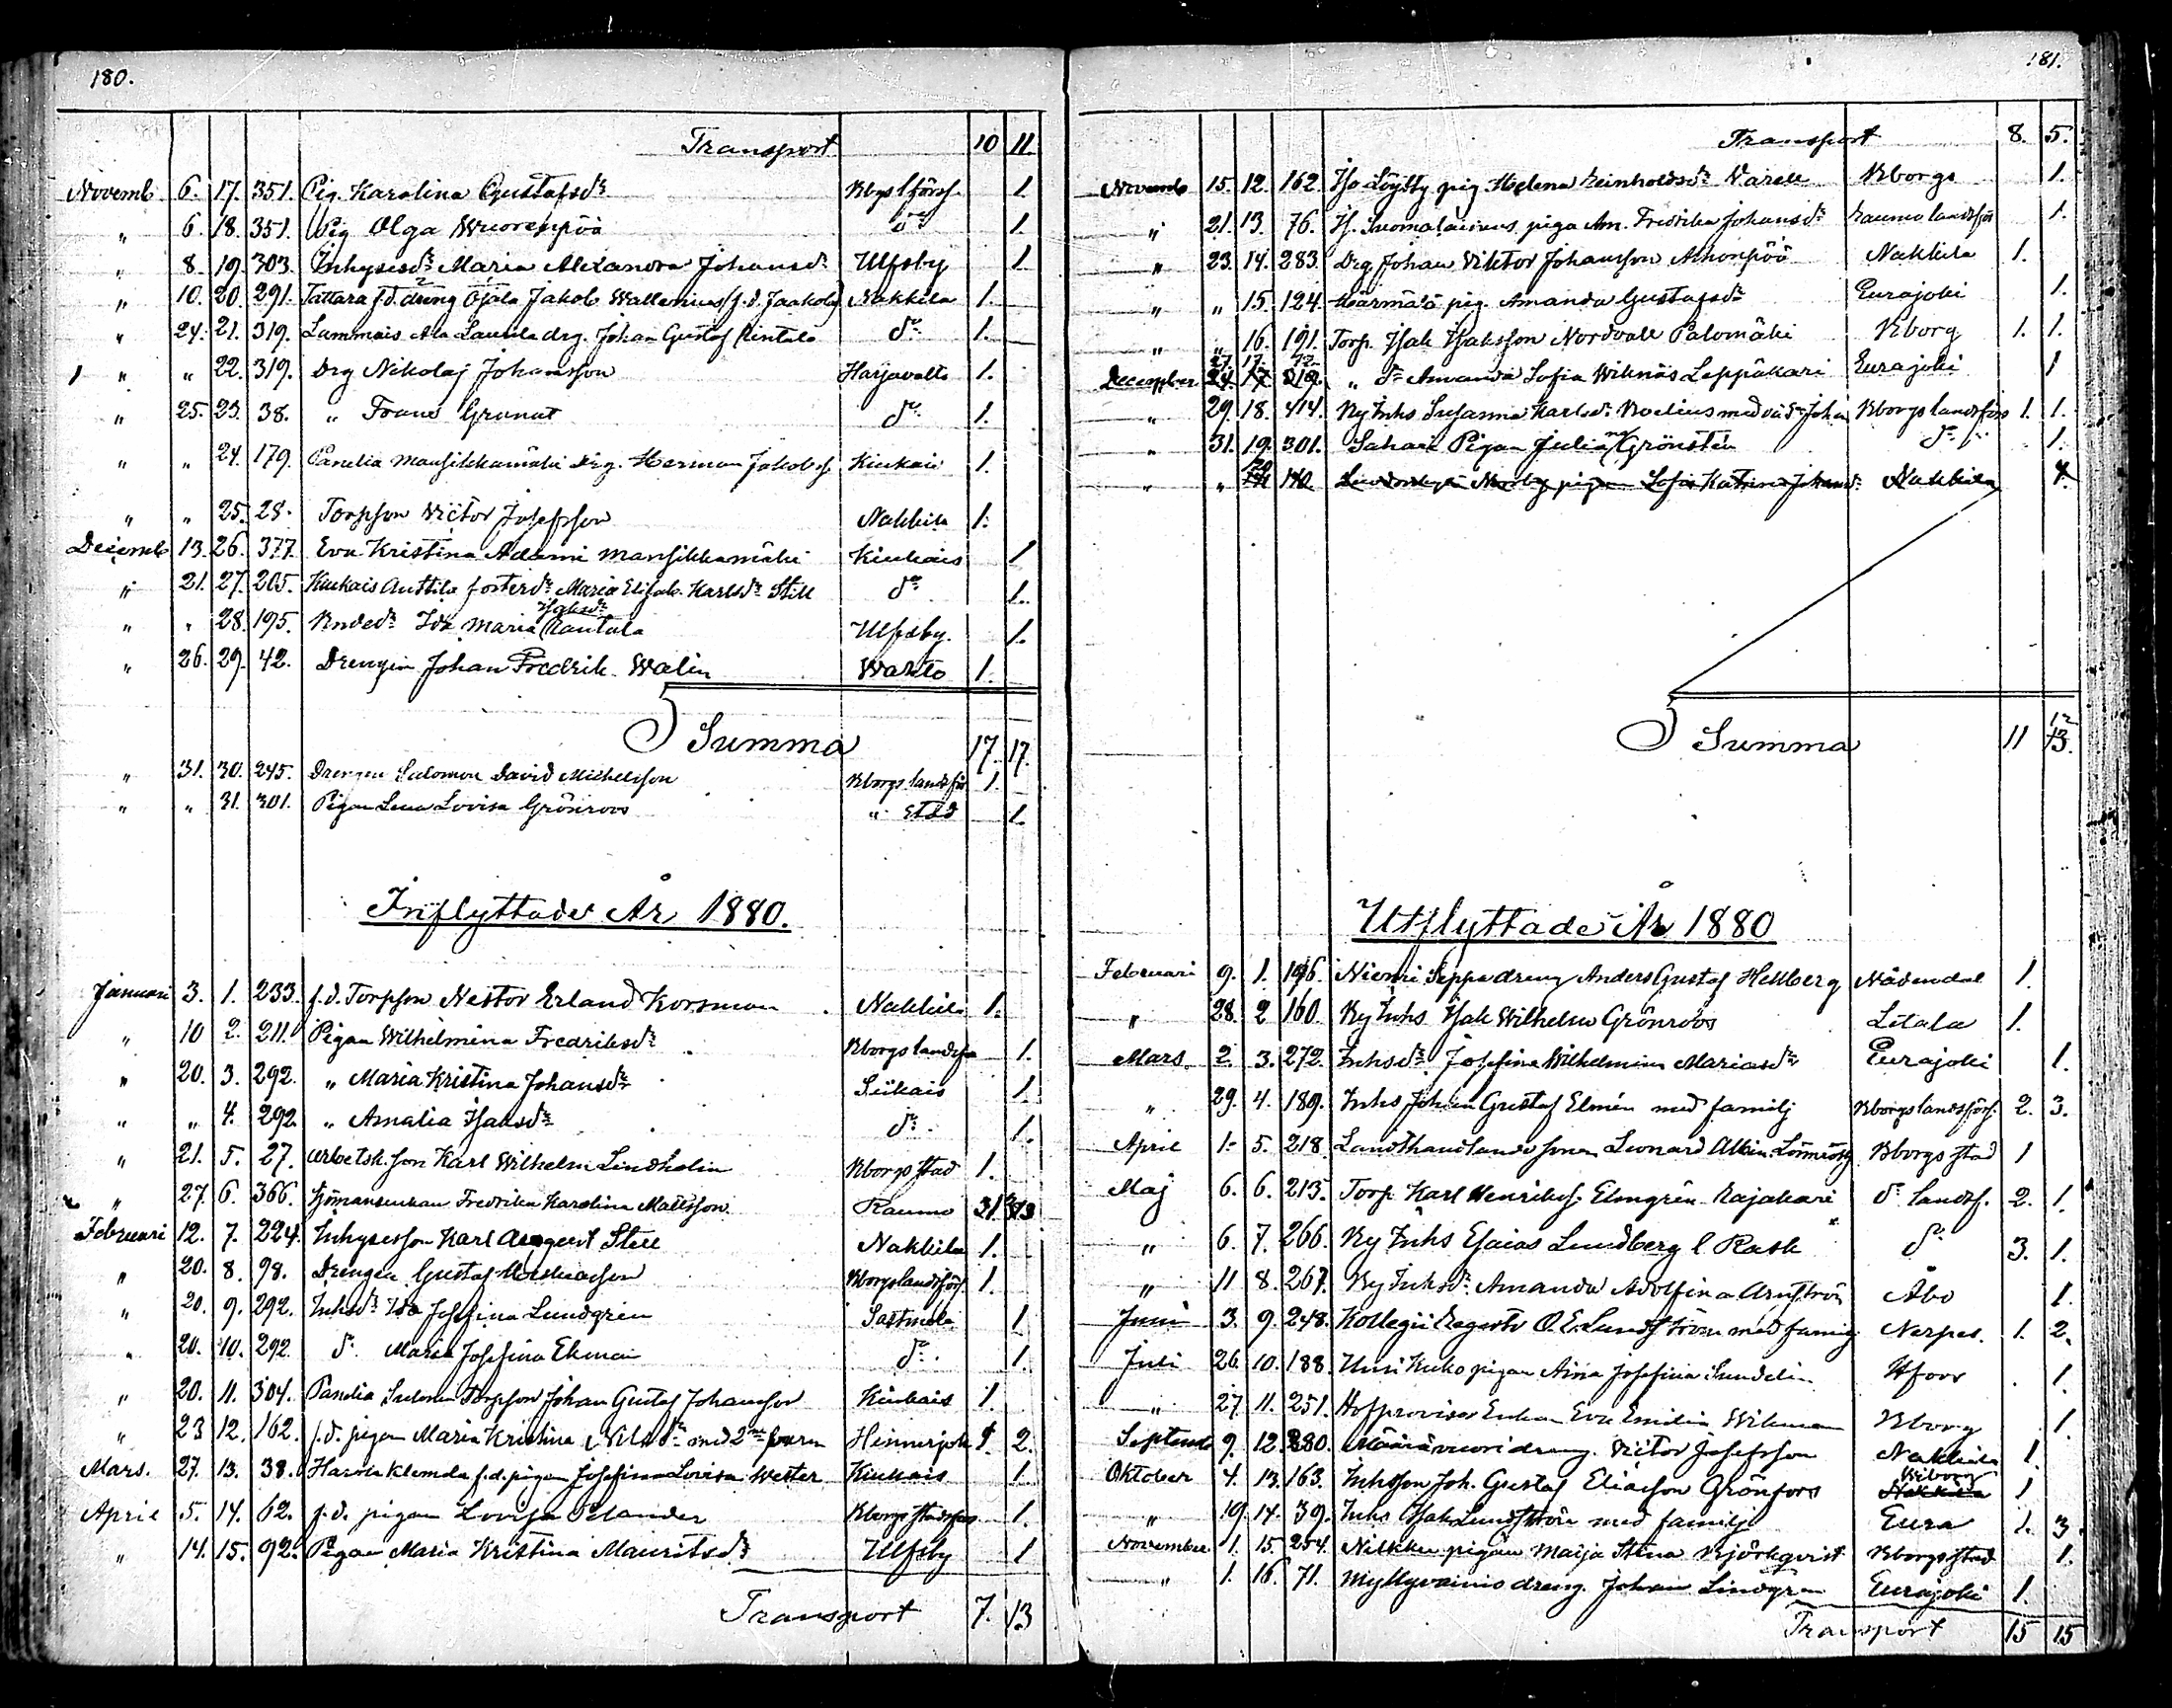 180.
Transport 10 11.
Novemb. 6. 17. 351. Pig. Karolina Gustafsdr 1.
„ 6. 18. 351. Pig Olga Wuorenpää do 1.
„ 8. 19. 303. Inhysesdr Maria Alexandra Johansdr Ulfsby 1
„ 10. 20. 291. Tattara f.d. dräng Ojala Jakob Wallenius (f.d. Jaakola) Nakkila 1.
„ 24. 21. 319. Lammais Ala Laurila drg. Johan Gustaf Rintala do 1.
„ „ 22. 319. Drg Nikolaj Johansson Harjavalta 1.
„ 25. 23. 38. „ Frans Grunat do 1.
„ „ 24. 179. Panelia Mansikkamäki Drg. Herman Jakobsf. Kiukais 1.
„ „ 25. 28. Torpson Victor Josefsson Nakkila 1.
Decemb. 13. 26. 377. Eva Kristina Adami Mansikkamäki Kiukais 1
„ 21. 27. 205. Kiukais Anttila fosterdr Maria Elisab. Karlsdr Still do 1.
„ „ 28. 195. Bndedr Ida Maria Isaksdr Rantala Ulfsby. 1.
„ 26. 29. 42. Drengen Johan Fredrik Walin Wahto 1.
Summa 17. 17.
„ 31. 30. 245. Drengen Salomon David Michelsson Bborgs landsför 1.
„ „ 31. 301. Pigan Lena Lovisa Grönroos „ stad 1.
Inflyttade År 1880.
Januari 3. 1. 233. f.d. Torpson Nestor Erland Korsman Nakkila 1.
„ 10 2. 211. Pigan Wilhelmina Fredriksdr Bborgs landsfö 1.
„ 20. 3. 292. „ Maria Kristina Johansdr Siikais 1
„ „ 4. 292. „ Amalia Isaksdr do 1.
„ 21. 5. 27. Arbetsk. son Karl Wilhelm Lindholm Bborgs stad 1.
„ 27. 6. 366. Sjömansenkan Fredrika Karolina Mattsson Raumo
Februari 12. 7. 224. Inhysesson Karl August Still Nakkila 1.
„ 20. 8. 98. Drengen Gustaf Bborgs landsförs. 1.
„ 20. 9. 292. Inhsdr Ida Josefina Lundgren Sastmola 1
„ 20. 10. 292. do Maria Josefina Ekman do 1.
„ 20. 11. 304. Panelia Torpson Johan Gustaf Johansson Kiukais 1.
„ 23 12. 162. f.d. pigan Maria Kristina Nilsdr med 2ne barn Hinnerjoki 1. 2.
Mars. 27. 13. 38. Harola Klemola f.d. pigan Josefina Lovisa Wester Kiukais 1.
April 5. 14. 62. f.d. pigan Lovisa Selander Bborgs stadsförs 1.
„ 14. 15. 92. Pigan Maria Kristina Mauritsdr Ulfsby 1
Transport 7. 13
181.
Transport 8. 5.
Novemb 15. 12. 162. Iso Löytty pig. Helena Reinholdsdr Bborgs 1.
„ 21. 13. 76. H. Suomalainens piga Am. Fredrika Johansdr Raumo landsför 1.
„ 23. 14. 283. Drg Johan Viktor Johansson Ahonpää Nakkila 1.
„ „ 15. 124. Härmälä pig. Amanda Gustafsdr Eurajoki 1.
„ „ 16. 191. Torp. Isak Isaksson Nordvall Palomäki Bborg 1. 1.
December 27 17. „ do Amanda Sofia Wiknäs Leppäkari Eurajoki 1
„ 29. 18. 414. Ny Inhs Susanna Karlsdr med Bborgs landsförs 1. 1.
„ 31. 19. 301. Sahari Pigan Julia Grönstén do 1.
„ „ 20 140. pigan Sofia Katrina Johansdr Nakkila 1.
Summa 11 12 13.
Utflyttade År 1880
Februari 9. 1. 196. Niemi Seppä dreng Anders Gustaf Hellberg Nådendal 1.
„ 28. 2 160. Ny Inhs Isak Wilhelm Grönroos Letala 1.
Mars. 2. 3. 272. Inhsdr Josefina Wilhelmina Mariasdr Eurajoki 1.
„ 29. 4. 189. Inhs Johan Gustaf Elmén med familj Bborgs landsförs. 2. 3.
April 1. 5. 218. Landthandlande sonen Leonard Albin Bborgs stad 1
Maj 6. 6. 213. Torp Karl Henriksf. Elmgrén Rajakari do landsf. 2. 1.
„ 6. 7. 266. Ny Inhs Esaias Lundberg l Rask do 3. 1.
„ 11 8. 267. Ny Inhsdr Amanda Adolfina Åbo 1.
Juni 3. 9. 248. Kollegii Registr O.E. Lundström med familj Nerpes. 1. 2.
Juli 26. 10. 188. Uusi Kuko pigan Aina Josefina Sundelin Hfors 1.
„ 27. 11. 251. Hofprovisor Enkan Eva Emilia Wikman Bborg 1.
Septemb 9. 12. 280. Määrävuori dreng. Victor Josefsson Nakkila 1.
Oktober 4. 13. 163. Inhsson Joh. Gustaf Eliasson Grönfors Wiborg Nakkila 1
„ 19. 14. 39. Inhs Isak Lundström med familj Eura 1. 3.
November 1. 15. 254. Nikku pigan Maija Stina Björkqvist Bborgs stad 1.
„ 1. 16. 71. Myllyvainio dreng. Johan Lindgren Eurajoki 1.
Transport 15 15